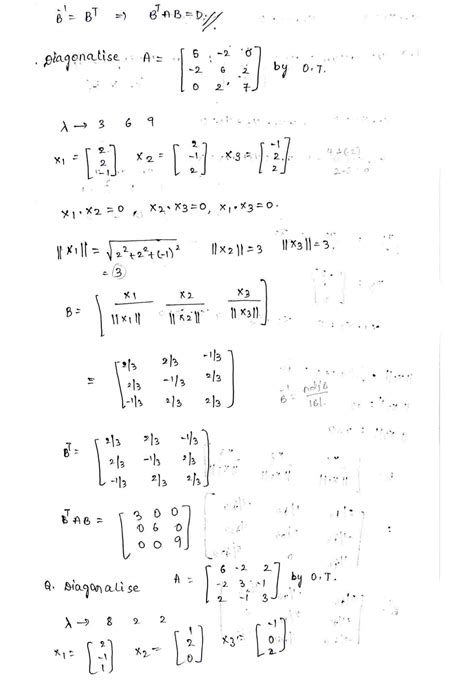 B⁻¹ = Bᵀ ⇒ BᵀAB = D.//
Diagonalise A = [5 -2 0; -2 6 2; 0 2 7] by O.T.
λ → 3 6 9
x1 = [2; 2; -1] x2 = [2; -1; 2] x3 = [-1; 2; 2]
x1 . x2 = 0 , x2 . x3 = 0, x1 . x3 = 0.
||x1|| = √2² + 2² + (-1)² ||x2|| = 3 ||x3|| = 3.
= 3
B = [x1/||x1|| x2/||x2|| x3/||x3||]
= [2/3 2/3 -1/3; 2/3 -1/3 2/3; -1/3 2/3 2/3]
Bᵀ = [2/3 2/3 -1/3; 2/3 -1/3 2/3; -1/3 2/3 2/3]
BᵀAB = [3 0 0; 0 6 0; 0 0 9]
Q. Diagonalise A = [6 -2 2; -2 3 -1; 2 -1 3] by O.T.
λ → 8 2 2
x1 = [2; -1; 1] x2 = [1; 2; 0] x3 = [-1; 0; 2]